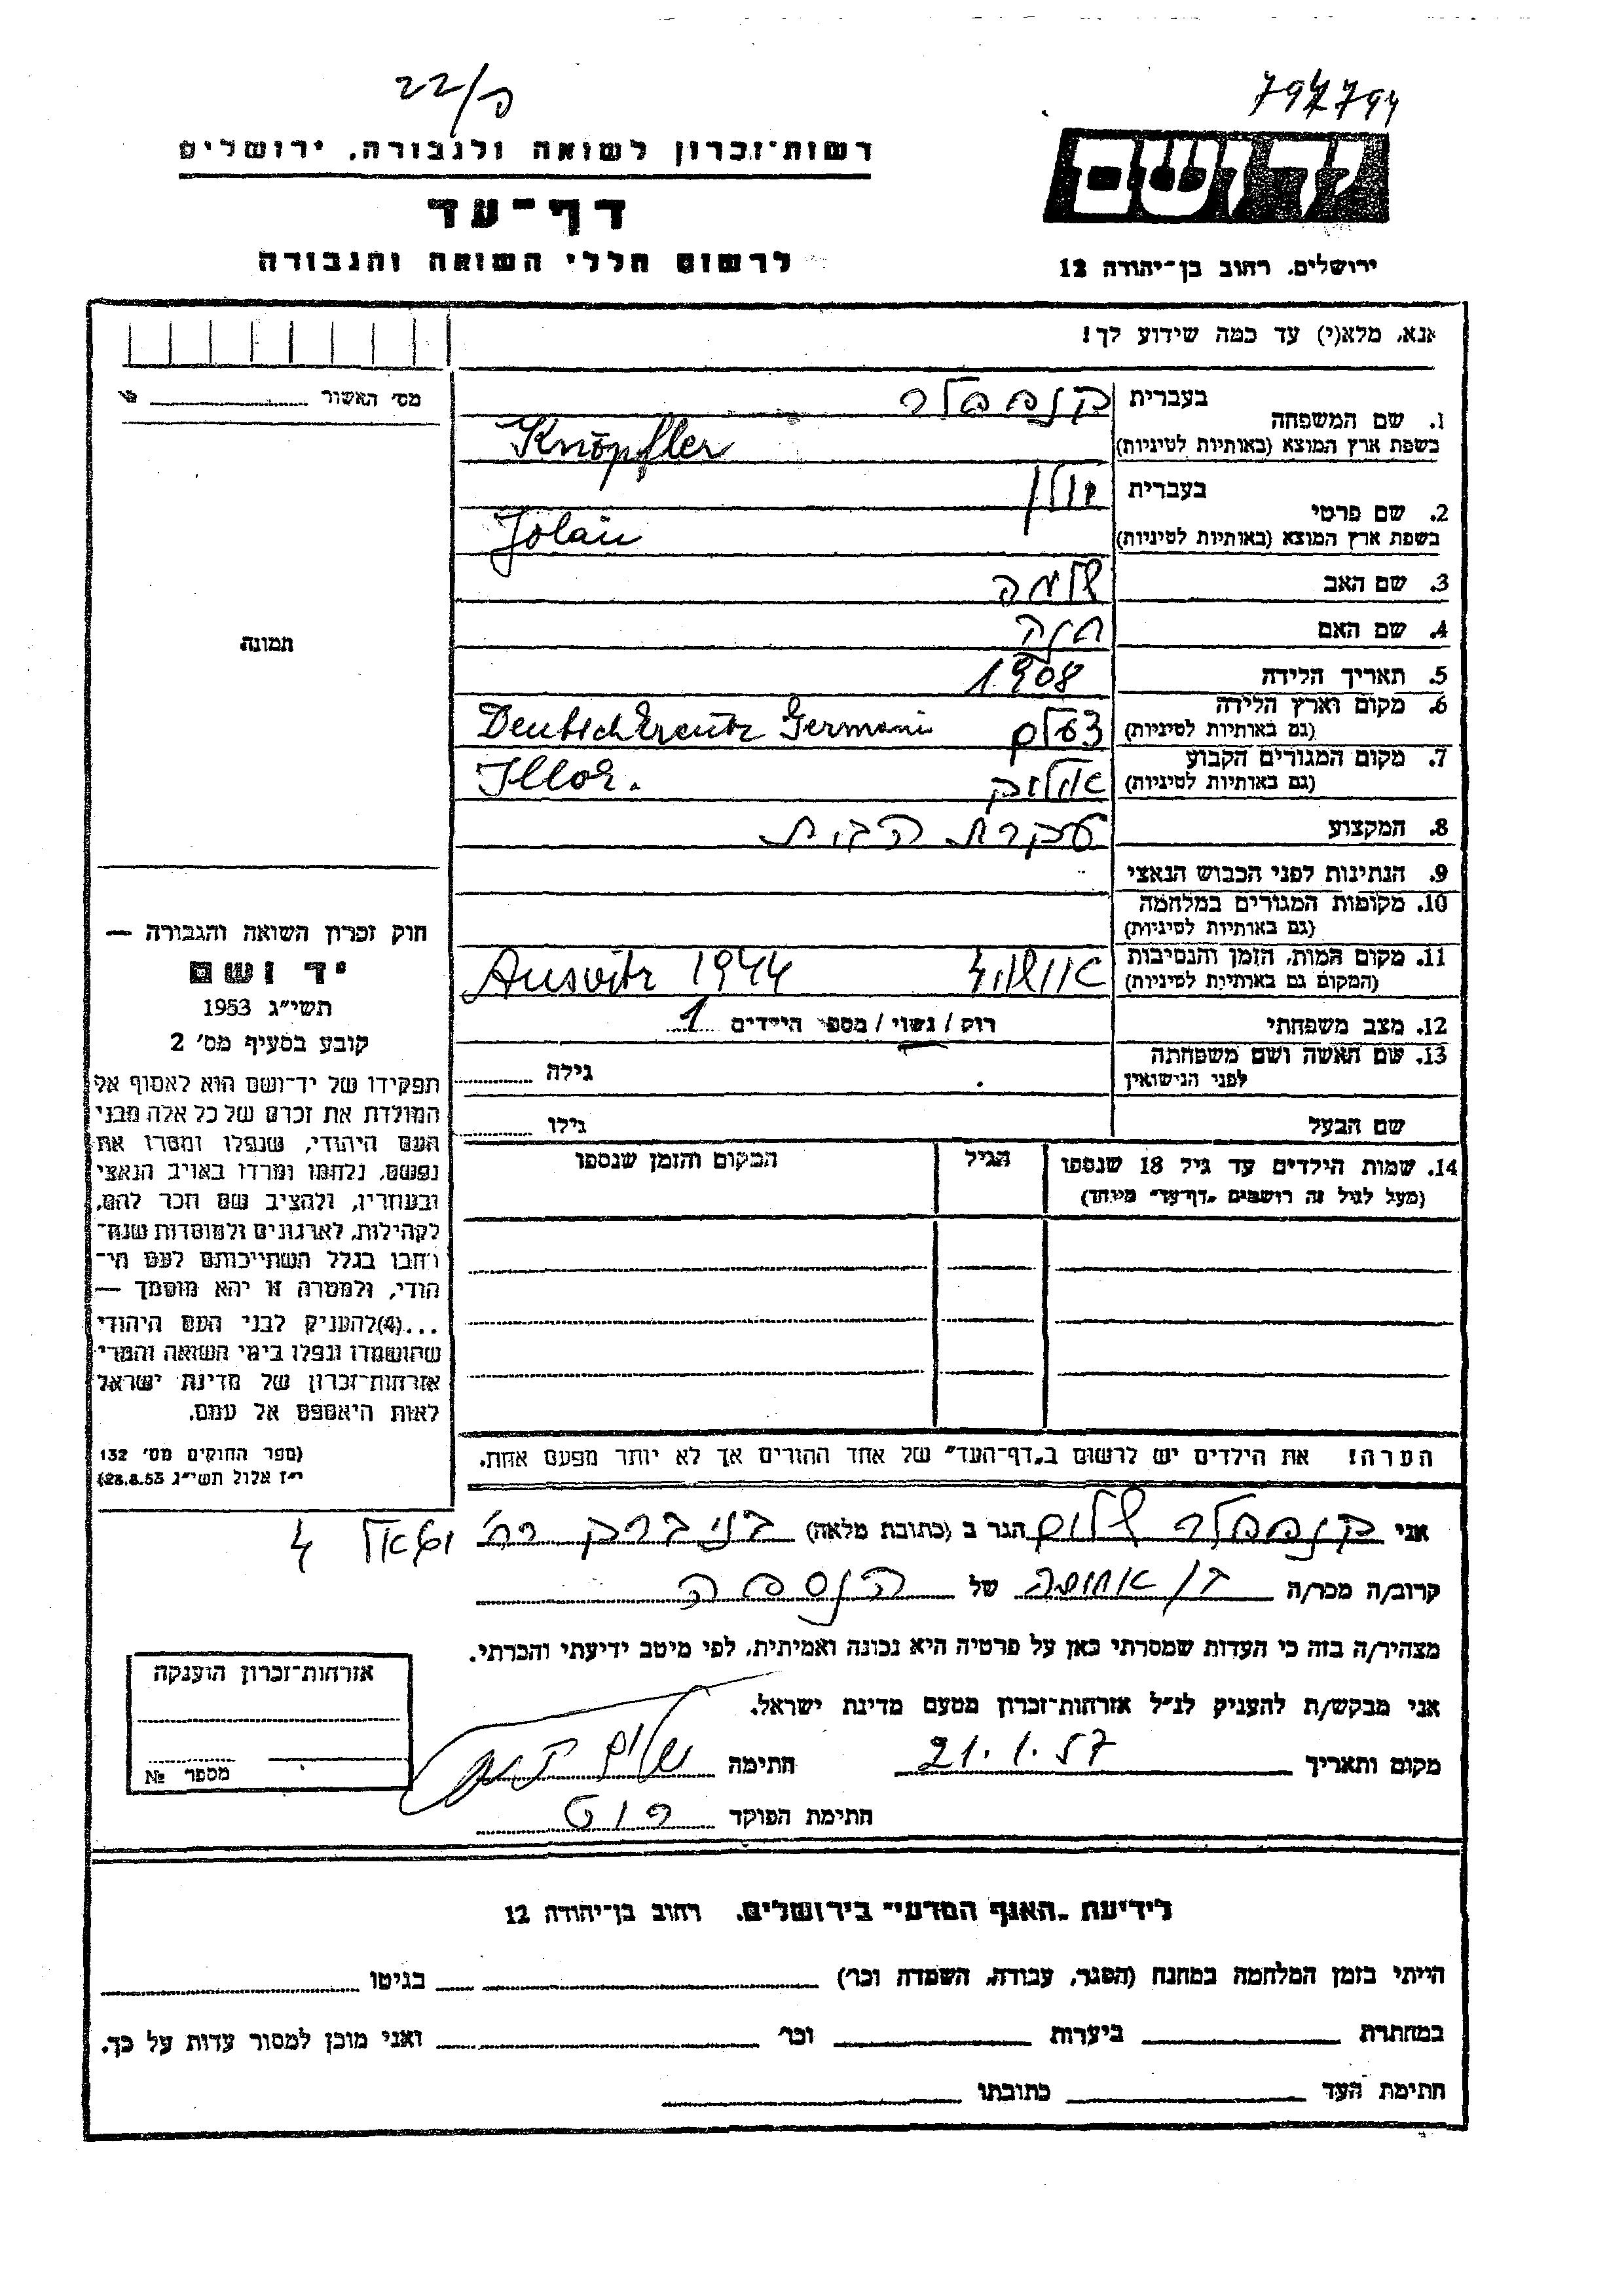 22/פ
797794
רשות־זכרון לשואה ולגבורה, ירושלים
ידושם
דף־עד
לרשום חללי השואה והגבורה
ירושלים, רחוב בן־יהודה 12
אנא, מלא(י) עד כמה שידוע לך!
מס׳ האשור
1. שם המשפחה בעברית קנפפלר
בשפת ארץ המוצא (באותיות לטיניות) Knöpfler
2. שם פרטי בעברית יולן
בשפת ארץ המוצא (באותיות לטיניות) Jolán
3. שם האב שלמה
4. שם האם חנה
תמונה
5. תאריך הלידה 1908
6. מקום וארץ הלידה
(גם באותיות לטיניות) צלם Deutschkreutz Germani
7. מקום המגורים הקבוע
(גם באותיות לטיניות) אילוק Illok.
8. המקצוע עקרת הבית
9. הנתינות לפני הכבוש הנאצי
10. מקומות המגורים במלחמה
(גם באותיות לטיניות)
11. מקום המות, הזמן והנסיבות
(המקום גם באותיות לטיניות) אושויץ Ausvitz 1944
12. מצב משפחתי רוק / נשוי / מספר הילדים 1
13. שם האשה ושם משפחתה
לפני הנישואין גילה
שם הבעל גילו
14. שמות הילדים עד גיל 18 שנספו הגיל המקום והזמן שנספו
(מעל לגיל זה רושמים „דף־עד״ מיוחד)
חוק זכרון השואה והגבורה —
יד ושם
תשי״ג 1953
קובע בסעיף מס׳ 2
תפקידו של יד־ושם הוא לאסוף אל
המולדת את זכרם של כל אלה מבני
העם היהודי, שנפלו ומסרו את
נפשם, נלחמו ומרדו באויב הנאצי
ובעוזריו, ולהציב שם וזכר להם,
לקהילות, לארגונים ולמוסדות שנח־
רבו בגלל השתייכותם לעם הי־
הודי, ולמטרה זו יהא מוסמך —
...(4) להעניק לבני העם היהודי
שהושמדו ונפלו בימי השואה והמרי
אזרחות־זכרון של מדינת ישראל
לאות היאספם אל עמם.
(ספר החוקים מס׳ 132
י״ז אלול תשי״ג 28.8.53)
הערה! את הילדים יש לרשום ב„דף־העד״ של אחד ההורים אך לא יותר מפעם אחת.
אני קנפפלר שלום הגר ב (כתובת מלאה) בני ברק רח׳ 4
קרוב/ה מכר/ה בן אחותה של הנספה
מצהיר/ה בזה כי העדות שמסרתי כאן על פרטיה היא נכונה ואמיתית, לפי מיטב ידיעתי והכרתי.
אני מבקש/ת להעניק לנ״ל אזרחות־זכרון מטעם מדינת ישראל.
מקום ותאריך 21.1.57 חתימה שלום
חתימת הפוקד
אזרחות־זכרון הוענקה
מספר №
לידיעת „האגף המדעי״ בירושלים, רחוב בן־יהודה 12
הייתי בזמן המלחמה במחנה (הסגר, עבודה, השמדה וכו׳) בגיטו
במחתרת ביערות וכו׳ ואני מוכן למסור עדות על כך.
חתימת העד כתובתו